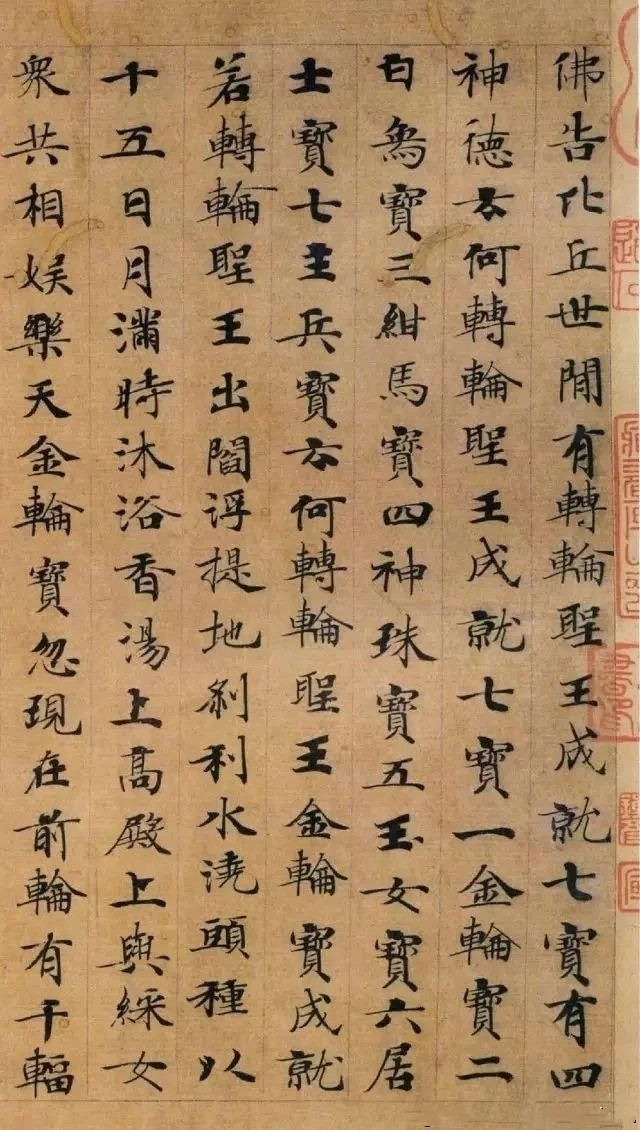 佛告比丘世間有轉輪聖王成就七寶有四
神德云何轉輪聖王成就七寶一金輪寶二
白象寶三紺馬寶四神珠寶五玉女寶六居
士寶七主兵寶云何轉輪聖王金輪寶成就
若轉輪聖王出閻浮提地剎利水澆頭種以
十五日月滿時沐浴香湯上高殿上與綵女
衆共相娛樂天金輪寶忽現在前輪有千輻